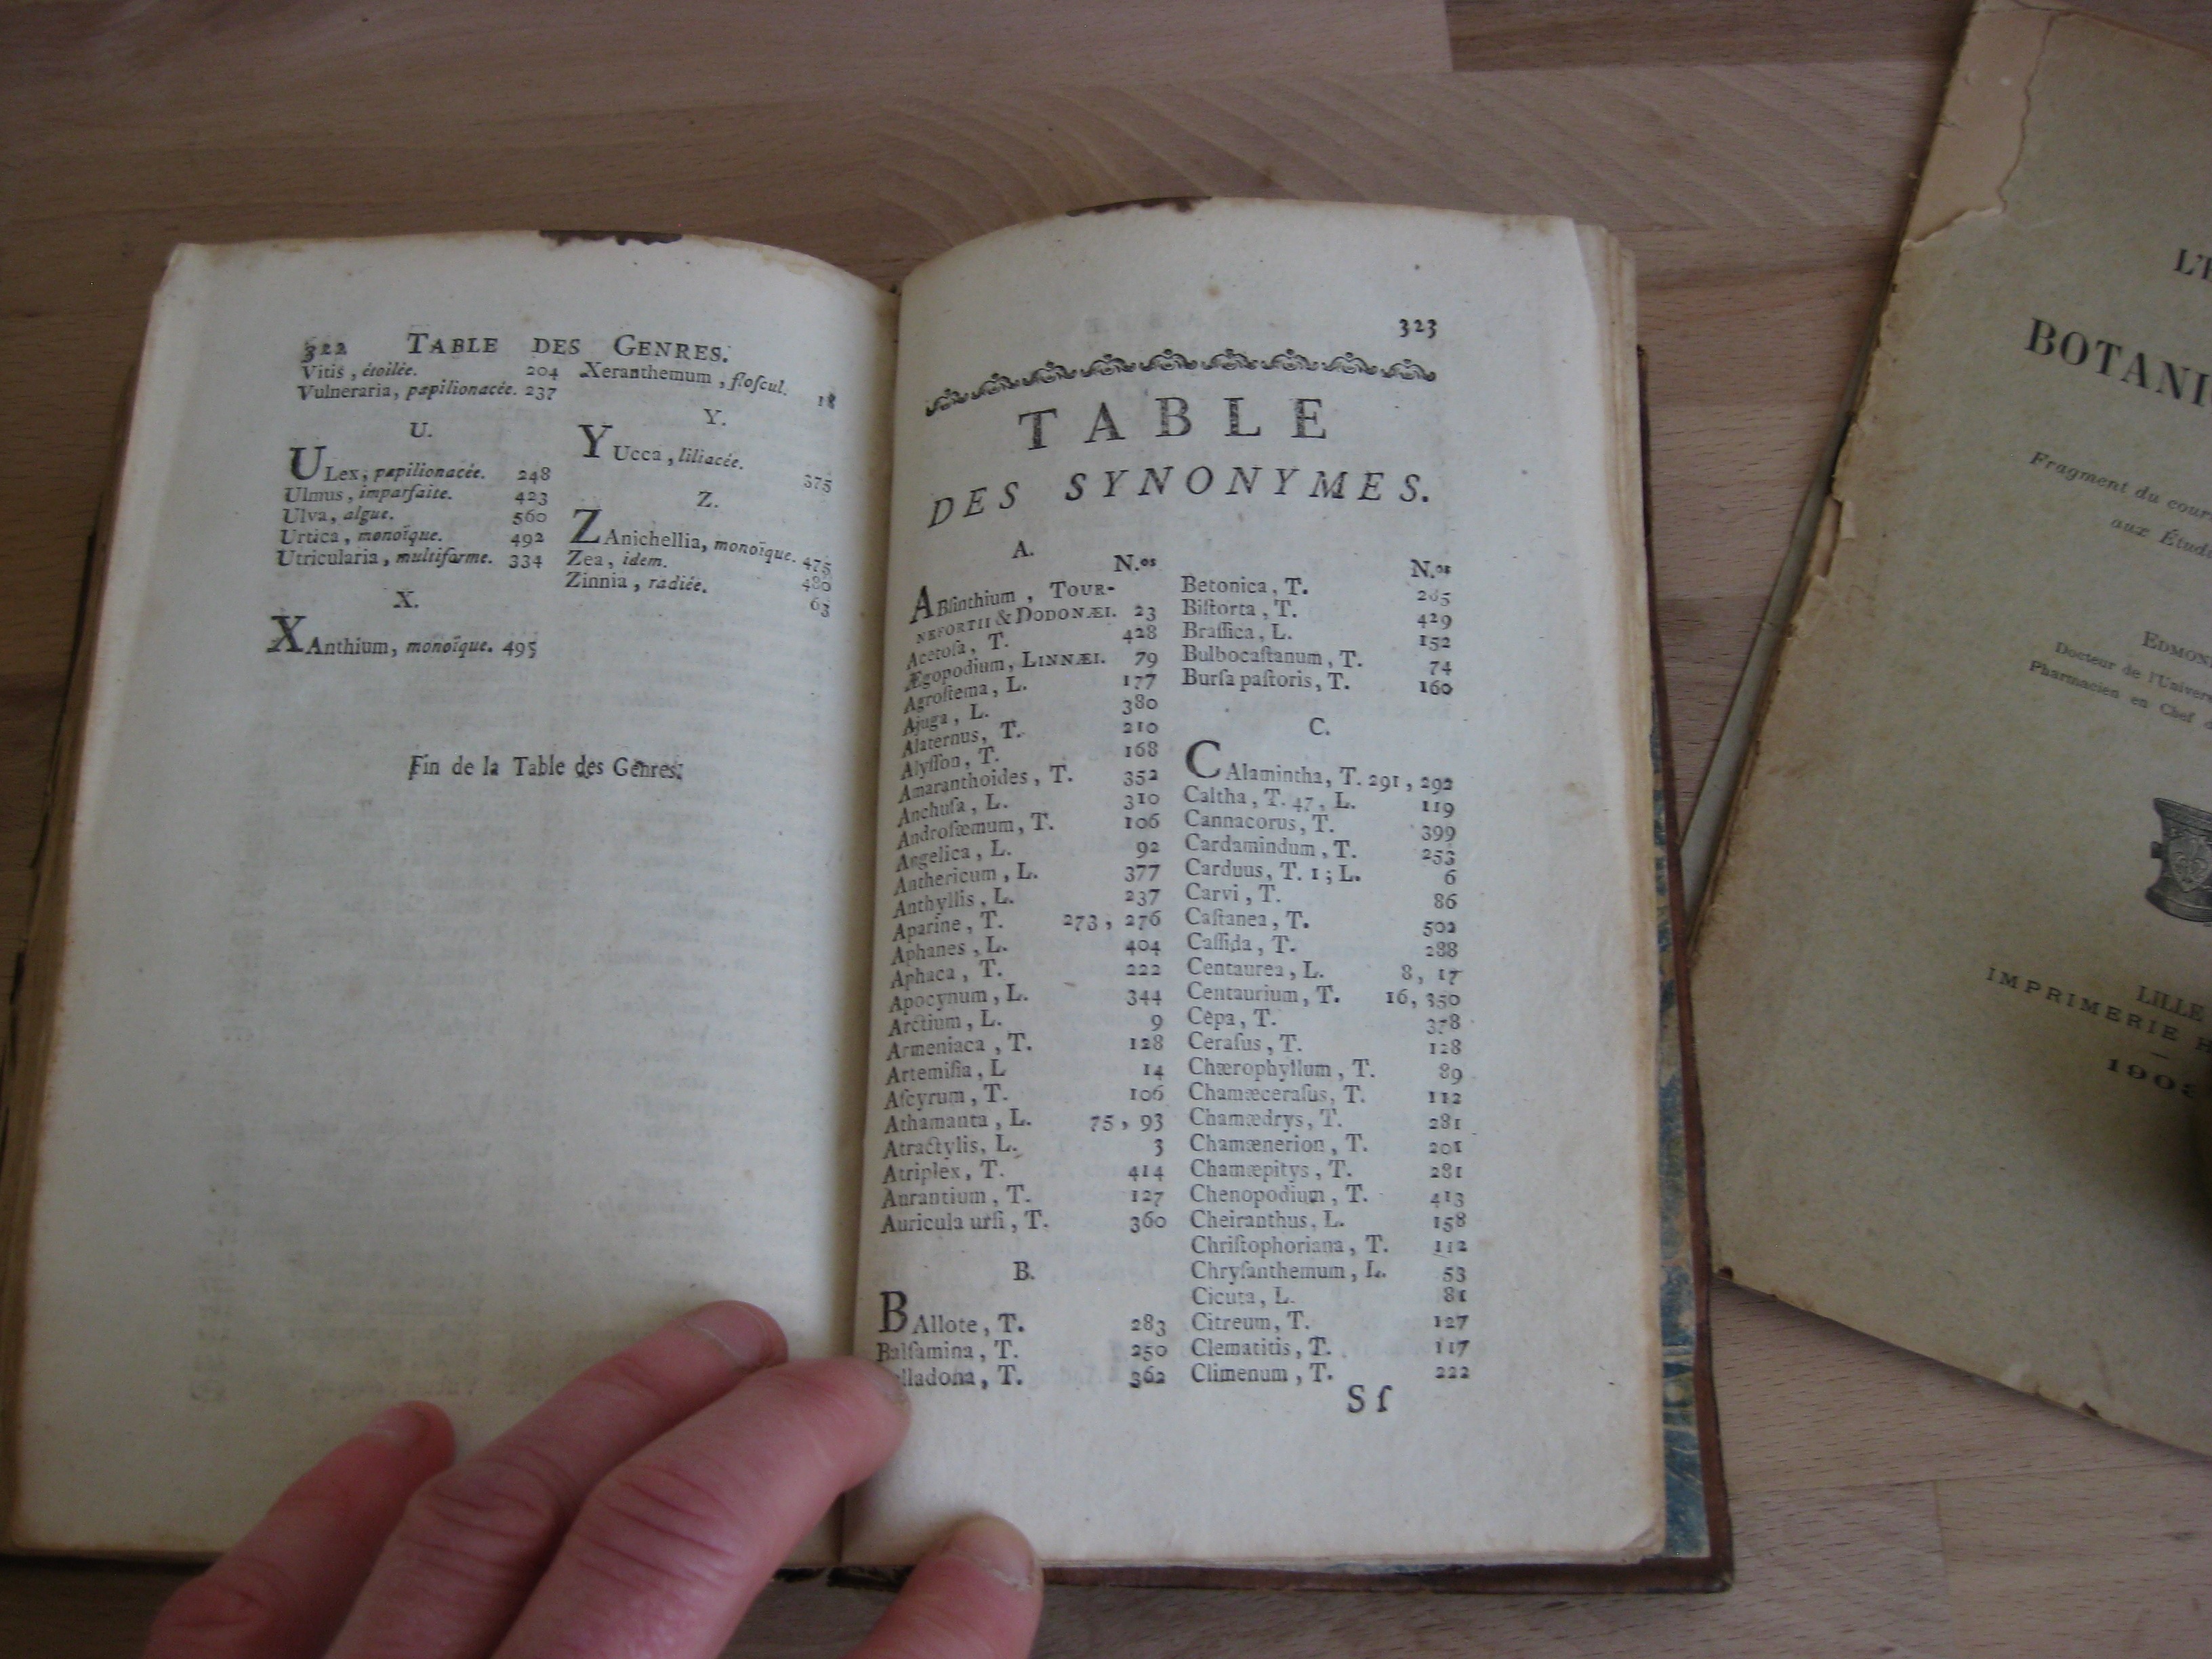 322 TABLE DES GENRES.
Vitis, étoilée. 204
Vulneraria, papilionacée. 237
U.
ULex, papilionacée. 248
Ulmus, imparfaite. 423
Ulva, algue. 560
Urtica, monoïque. 492
Utricularia, multiforme. 334
X.
XAnthium, monoïque. 495
Xeranthemum, floſcul. 18
Y.
YUcca, liliacée. 375
Z.
ZAnichellia, monoïque. 475
Zea, idem. 480
Zinnia, radiée. 63
Fin de la Table des Genres.
323
TABLE
DES SYNONYMES.
A.
N.os
ABſinthium, TOUR-
NEFORTII & DODONÆI. 23
Acetoſa, T. 428
Ægopodium, LINNÆI. 79
Agroſtema, L. 177
Ajuga, L. 380
Alaternus, T. 210
Alyſſon, T. 168
Amaranthoides, T. 352
Anchuſa, L. 310
Androſæmum, T. 106
Angelica, L. 92
Anthericum, L. 377
Anthyllis, L. 237
Aparine, T. 273, 276
Aphanes, L. 404
Aphaca, T. 222
Apocynum, L. 344
Arctium, L. 9
Armeniaca, T. 128
Artemiſia, L 14
Aſcyrum, T. 106
Athamanta, L. 75, 93
Atractylis, L. 3
Atriplex, T. 414
Aurantium, T. 127
Auricula urſi, T. 360
B.
BAllote, T. 283
Balſamina, T. 250
lladona, T. 362
N.os
Betonica, T. 285
Biſtorta, T. 429
Braſſica, L. 152
Bulbocaſtanum, T. 74
Burſa paſtoris, T. 160
C.
CAlamintha, T. 291, 292
Caltha, T. 47, L. 119
Cannacorus, T. 399
Cardamindum, T. 253
Carduus, T. 1; L. 6
Carvi, T. 86
Caſtanea, T. 502
Caſſida, T. 288
Centaurea, L. 8, 17
Centaurium, T. 16, 350
Cepa, T. 378
Ceraſus, T. 128
Chærophyllum, T. 89
Chamæceraſus, T. 112
Chamædrys, T. 281
Chamænerion, T. 201
Chamæpitys, T. 281
Chenopodium, T. 413
Cheiranthus, L. 158
Chriſtophoriana, T. 112
Chryſanthemum, L. 53
Cicuta, L. 81
Citreum, T. 127
Clematitis, T. 117
Climenum, T. 222
S ſ
BOTANI
Fragment du cour
aux Étud
EDMON
Docteur de l'Univer
Pharmacien en Chef d
LILLE
IMPRIMERIE H
190